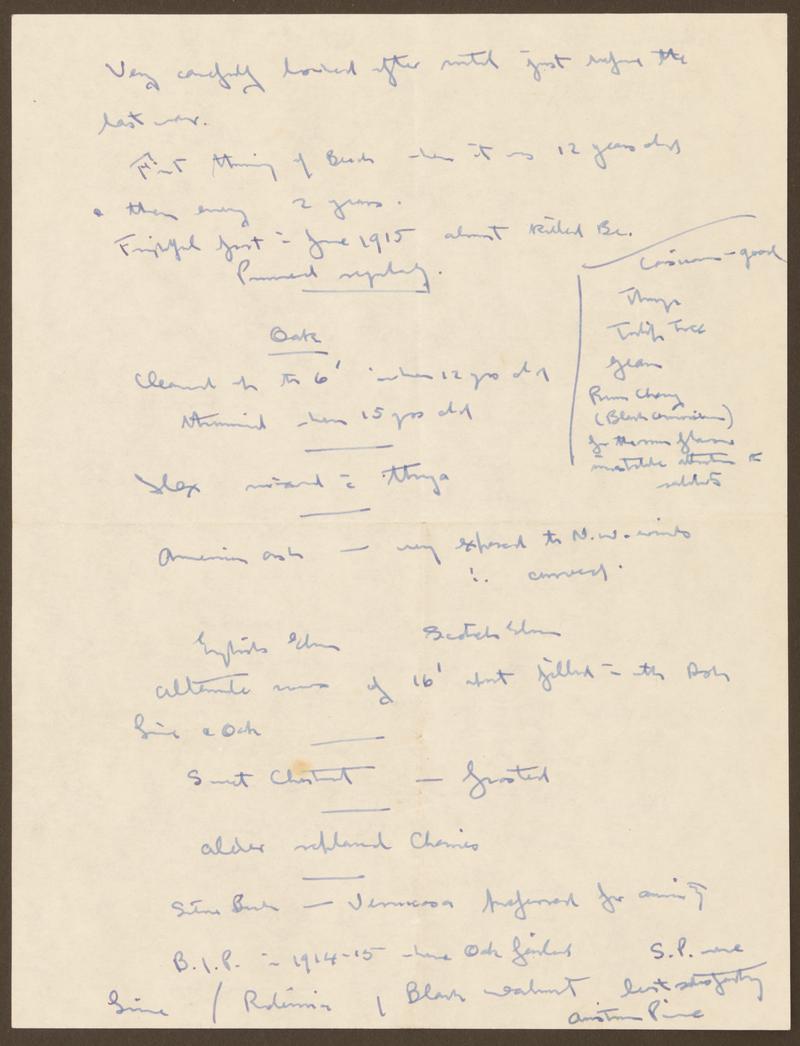 Very carefully looked after until just before the
last war.
First thinning of Beech when it was 12 years old
& then every 2 years.
Frightful frost in June 1915 almost killed Be.
Pruned regularly.
Oak
Cleaned up to 6' when 12 yrs old
thinned when 15 yrs old
Ilex mixed = Thuya
American ash — very exposed to N.W. winds
∴ canvas
English Elm Scotch Elm
alternate rows of 16' apart filled = with Ash
Lime & Oak
Sweet Chestnut — frosted
alder replaced Cherries
Silver Birch — Verrucosa preferred for amenity
B.I.P. in 1914-15 where Oak failed S.P. were
less satisfactory
Lime / Robinia / Black walnut
Austrian Pine
Corsicans - good
Thuya
Tulip Tree
Gean
Rum Cherry
(Black American)
to rabbits